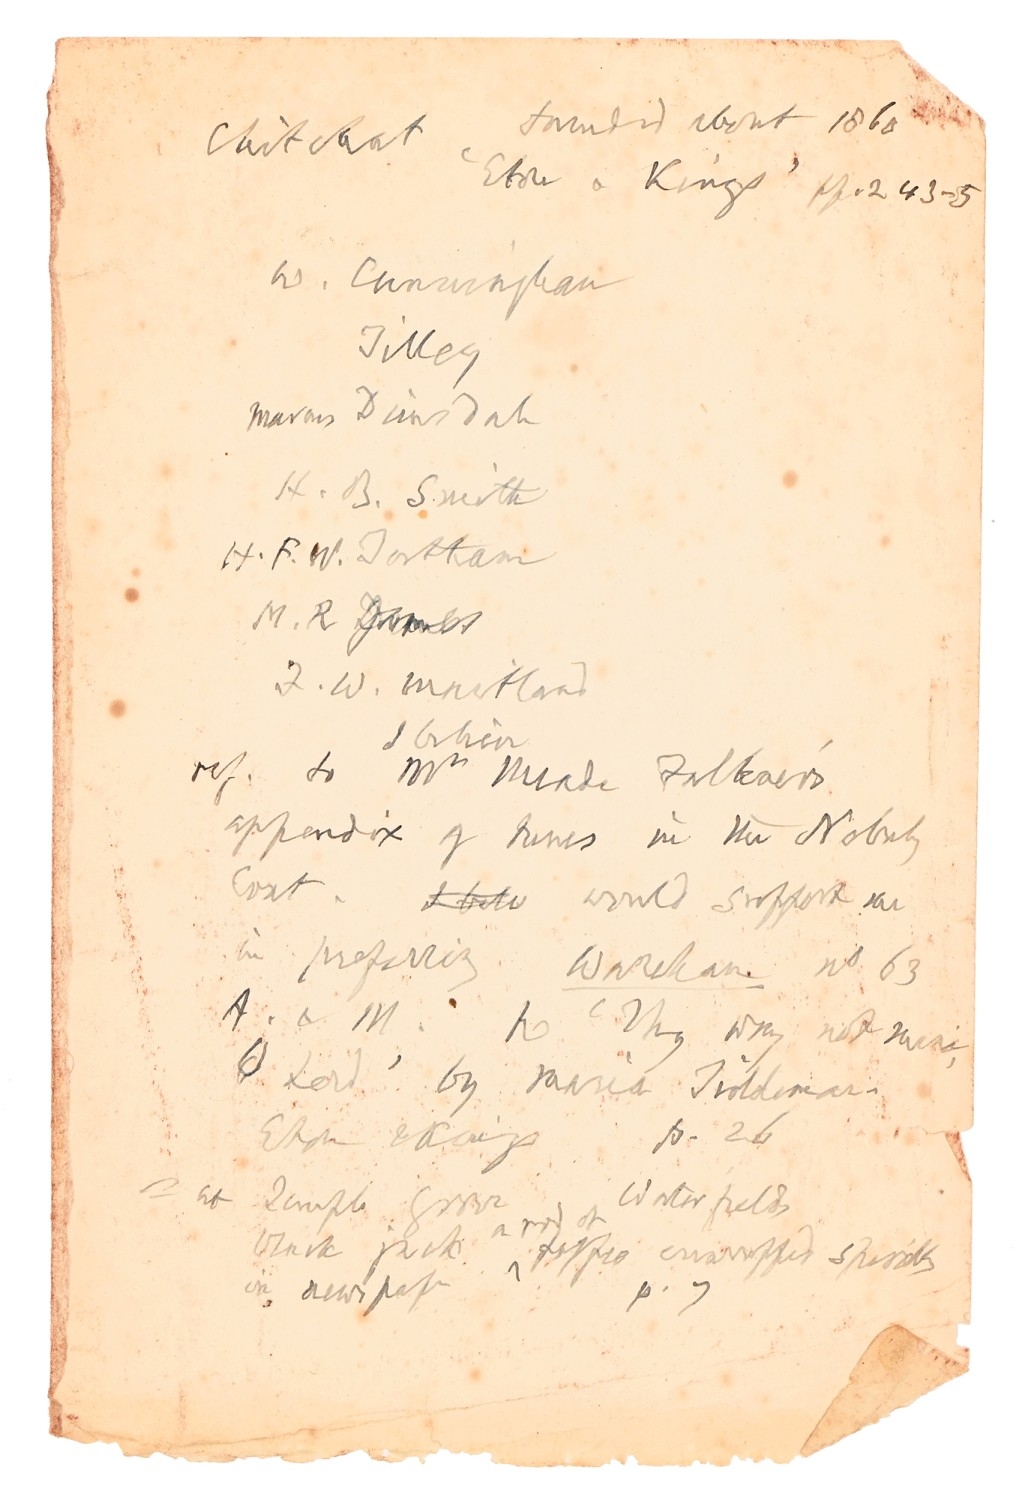 Chitchat founded about 1860
'Eton & Kings' pp. 243-5
W. Cunningham
Tilley
Marcus Dimsdale
H. B. Smith
H. F. W. Tatham
M. R James
F. W. Maitland
I believe
ref. to Mr Meade Falkner's
appendix of tunes in the Nebuly
Coat. I bele would support me
in preferring Wareham no 63
A. & M. to 'Thy way not mine,
O Lord' by Maria Tiddeman.
Eton & Kings p. 26
= at Temple Grove Waterfields
black jack a rod of toffee unwrapped
in newspaper p. 7